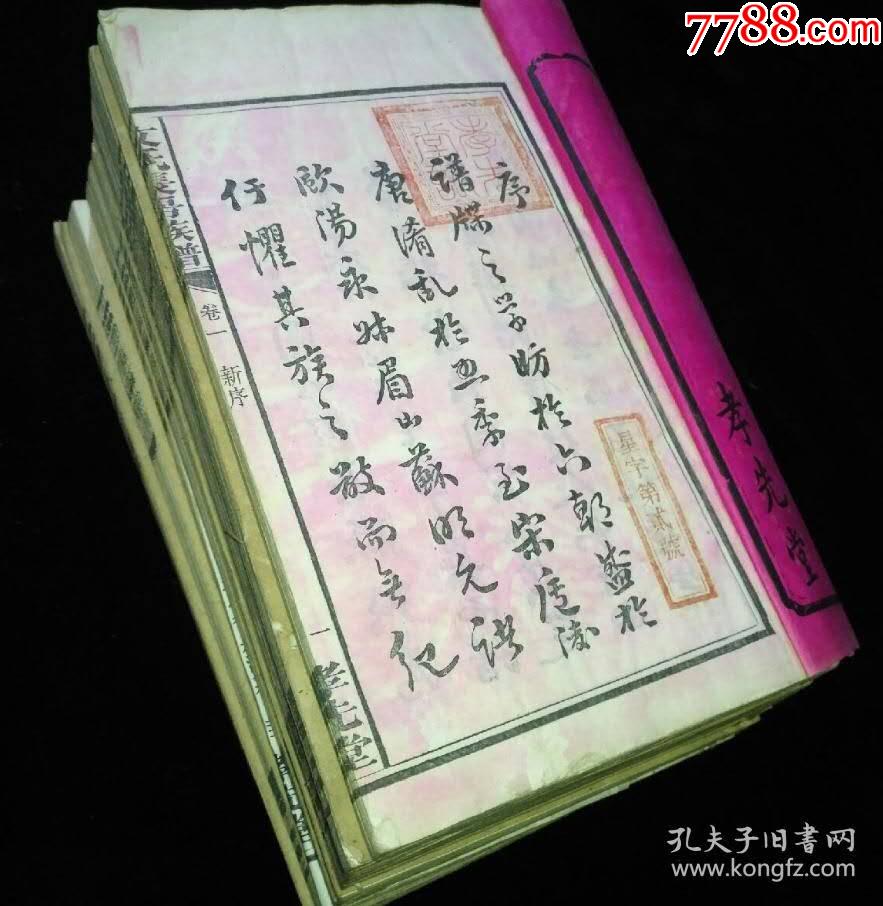 7788.com
孝先堂
序
譜牒之學昉於六朝盛於
唐淆亂於五季至宋廬陵
歐陽永叔眉山蘇明允
懼其族之散而無紀
星字第貳號
族譜
卷一
新序
一
孝先堂
孔夫子旧书网
www.kongfz.com